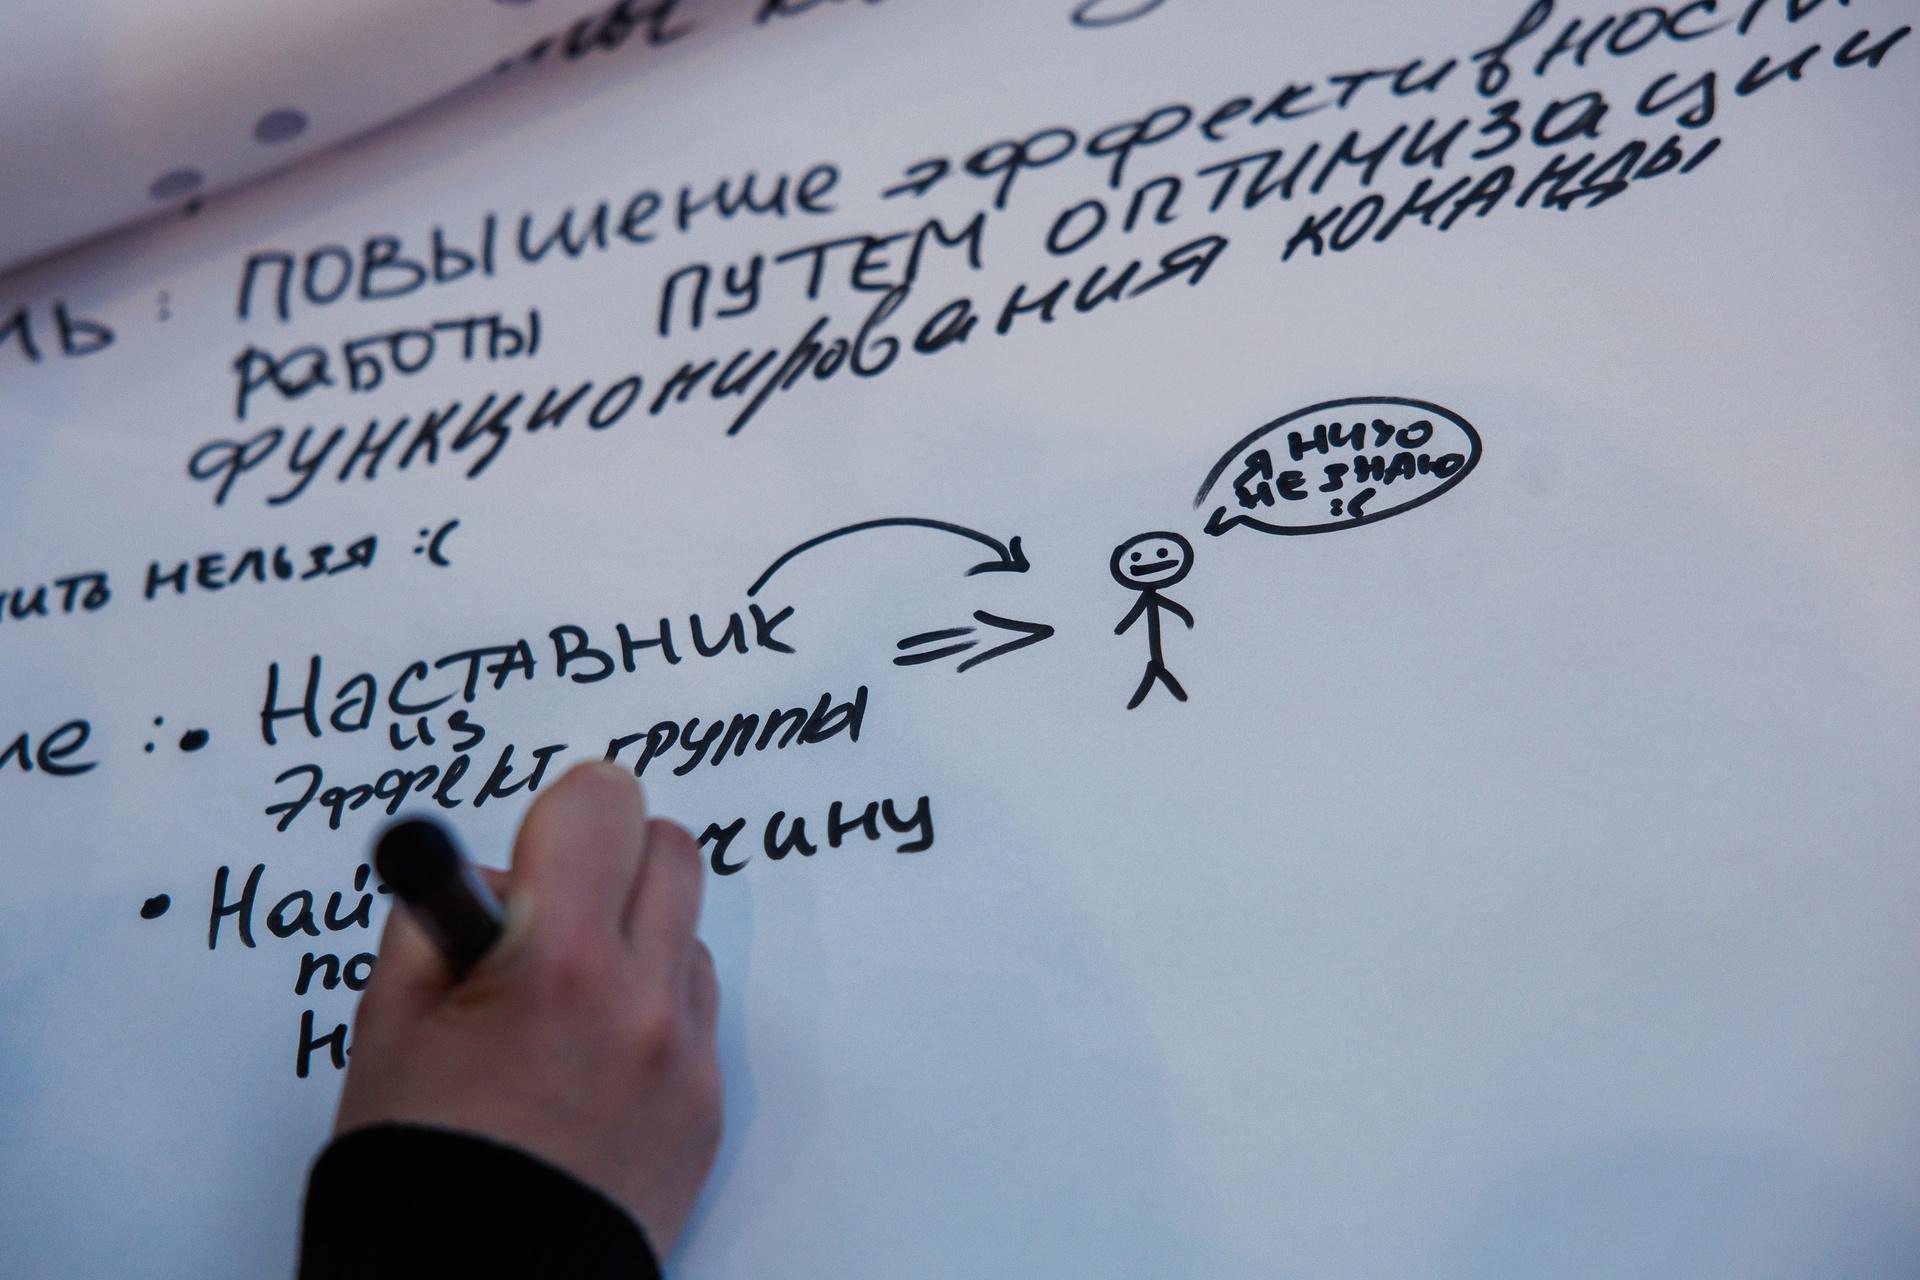 ль: повышение эффективности
работы путем оптимизации
функционирования команды
я ничо
не знаю
:(
ить нельзя :(
ие:
• Наставник
из
Эффект группы
• Най чину
по